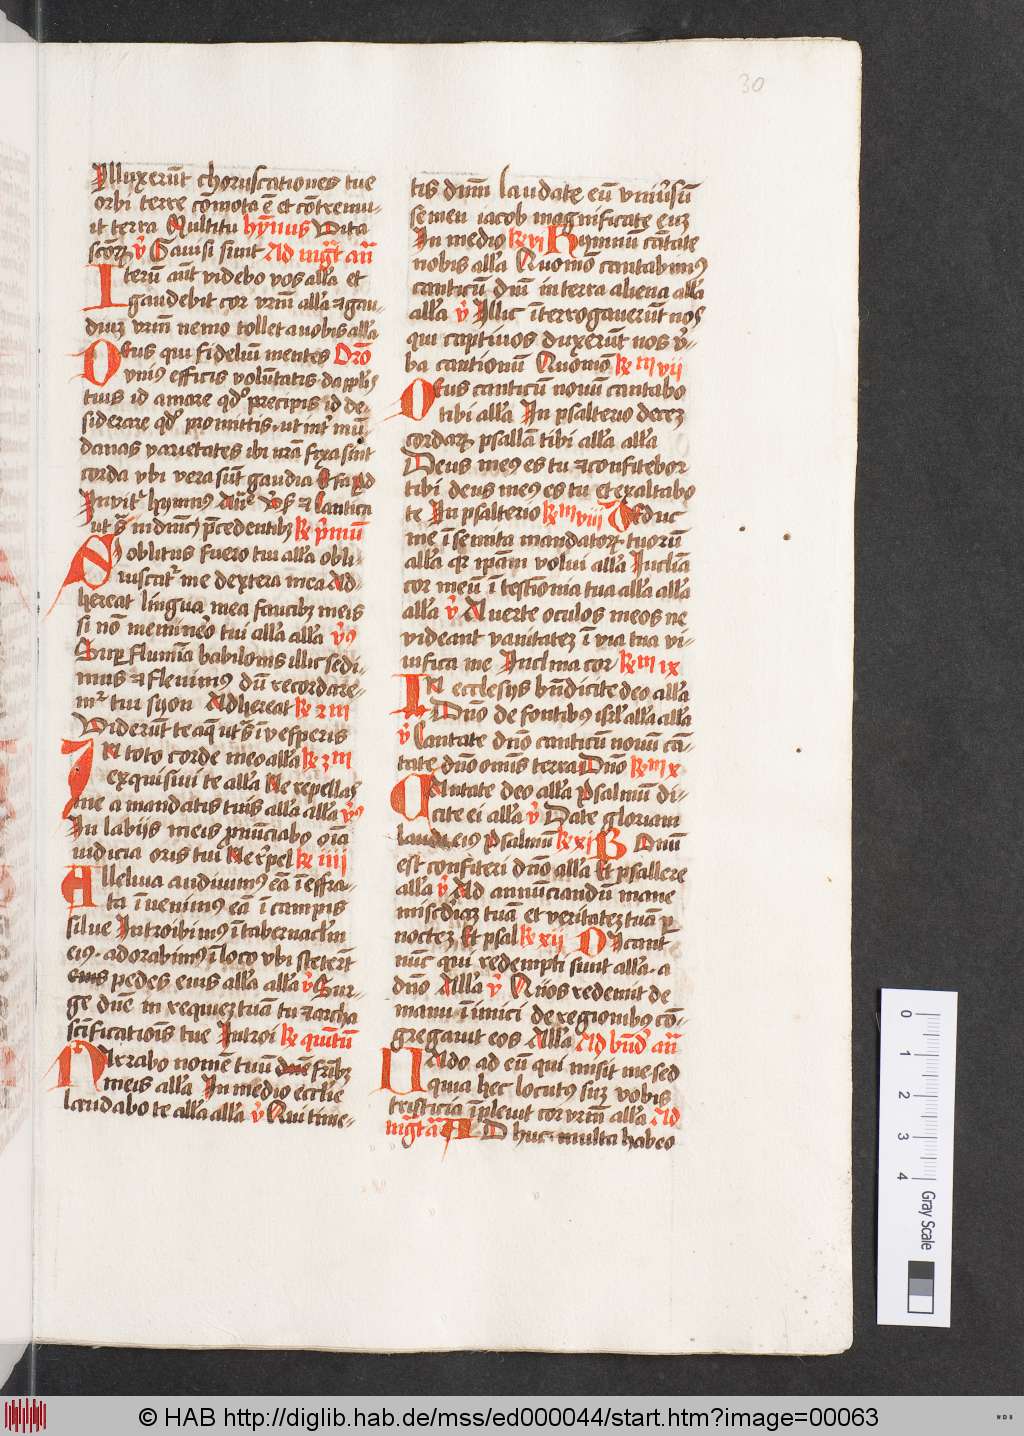 30
Illuxerūt choruscationes tue
orbi terre cōmota ē et cōtremu-
it terra Multitu hȳnus Vita
scōrꝝ ꝟ Gauisi sunt Ad mgt̄ an̄
Iterū aūt videbo vos alla et
gaudebit cor vrm̄ alla ⁊ gau-
diuꝫ vrm̄ nemo tollet a vobis alla
Deus qui fideliū mentes Orō
vnius efficis volūtatis da pplis
tuis id amare qd precipis id de-
siderare qd promittis ut int mū
danas varietates ibi nrā fixa sint
corda vbi vera sūt gaudia Ad
Inuit hymnus An̄ Vs ⁊ Cantica
ut sͣ in dnīcis precedentibꝫ Re p̄mū
Si oblitus fuero tui alla obli-
uiscat me dextera mea Ad
hereat lingua mea faucibꝫ meis
si nō meminero tui alla alla ꝟꝰ
Sup flumīa babilonis illic sedi-
mus ⁊ fleuimꝰ dū recordare-
mͬ tui syon Adhereat Re 2 m
Viderūt te aq̄ ut sͣ ī vesperis
In toto corde meo alla Re 3 m
exquisiui te alla Ne repellas
me a mandatis tuis alla alla ꝟꝰ
In labijs meis pnūciabo oīa
iudicia oris tui Ne repel Re iiii
Alleluia audiuimꝰ eā ī effra-
ta īuenimꝰ eā ī campis
silue Introibimꝰ ī tabernaclm
eiꝰ adorabimꝰ ī loco vbi steterūt
eius pedes eius alla alla ꝟ Sur-
ge dn̄e in requiem tuā tu ⁊ archa
sc̄ificatiōis tue Introi Re quītū
Narrabo nomē tuū dn̄e fribꝫ
meis alla In medio eccl̄ie
laudabo te alla alla ꝟ Qui time-
tis dnm̄ laudate eū vniūsū
semen iacob magnificate euꝫ
In medio Re vi Hymnū cātate
nobis alla Quomō cantabimꝰ
canticū dn̄i in terra aliena alla
alla ꝟ Illic īterrogauerūt nos
qui captiuos duxerūt nos v-
ba cantionū Quomō Re m vii
Deus canticū nouū cantabo
tibi alla In psalterio decez
cordarꝝ psallā tibi alla alla
Deus meꝰ es tu ⁊ confitebor
tibi deus meꝰ es tu et exaltabo
te In psalterio Re m viii Deduc
me ī semita mandatorꝝ tuorū
alla qr ipam volui alla Inclīa
cor meū ī testīonia tua alla alla
alla ꝟ Auerte oculos meos ne
videant vanitatez ī via tua vi-
uifica me Inclina cor Re m ix
In ecclesijs bn̄dicite deo alla
Dn̄o de fontibꝰ isrl alla alla
ꝟ Cantate dn̄o canticū nouū cā-
tate dn̄o omīs terra Dn̄o Re m x
Cantate deo alla Psalmū di-
cite ei alla ꝟ Date gloriam
laudi eiꝰ Psalmū Re xi Bonū
est confiteri dn̄o alla Et psallere
alla ꝟ Ad annūciandū mane
misc̄diaꝫ tuā et veritatez tuā p
noctez Et psal Re xii Dicant
nūc qui redempti sunt alla a
dn̄o Alla ꝟ Quos redemit de
manu īimici de regionibꝰ cō-
gregauit eos Alla Ad bn̄d an̄
Vado ad eū qui misit me sed
quia hec locutꝰ suꝫ vobis
tristicia īpleuit cor vrm̄ alla Ad
mgt̄ an̄ Adhuc multa habeo
0
1
2
3
4
Gray Scale
© HAB http://diglib.hab.de/mss/ed000044/start.htm?image=00063